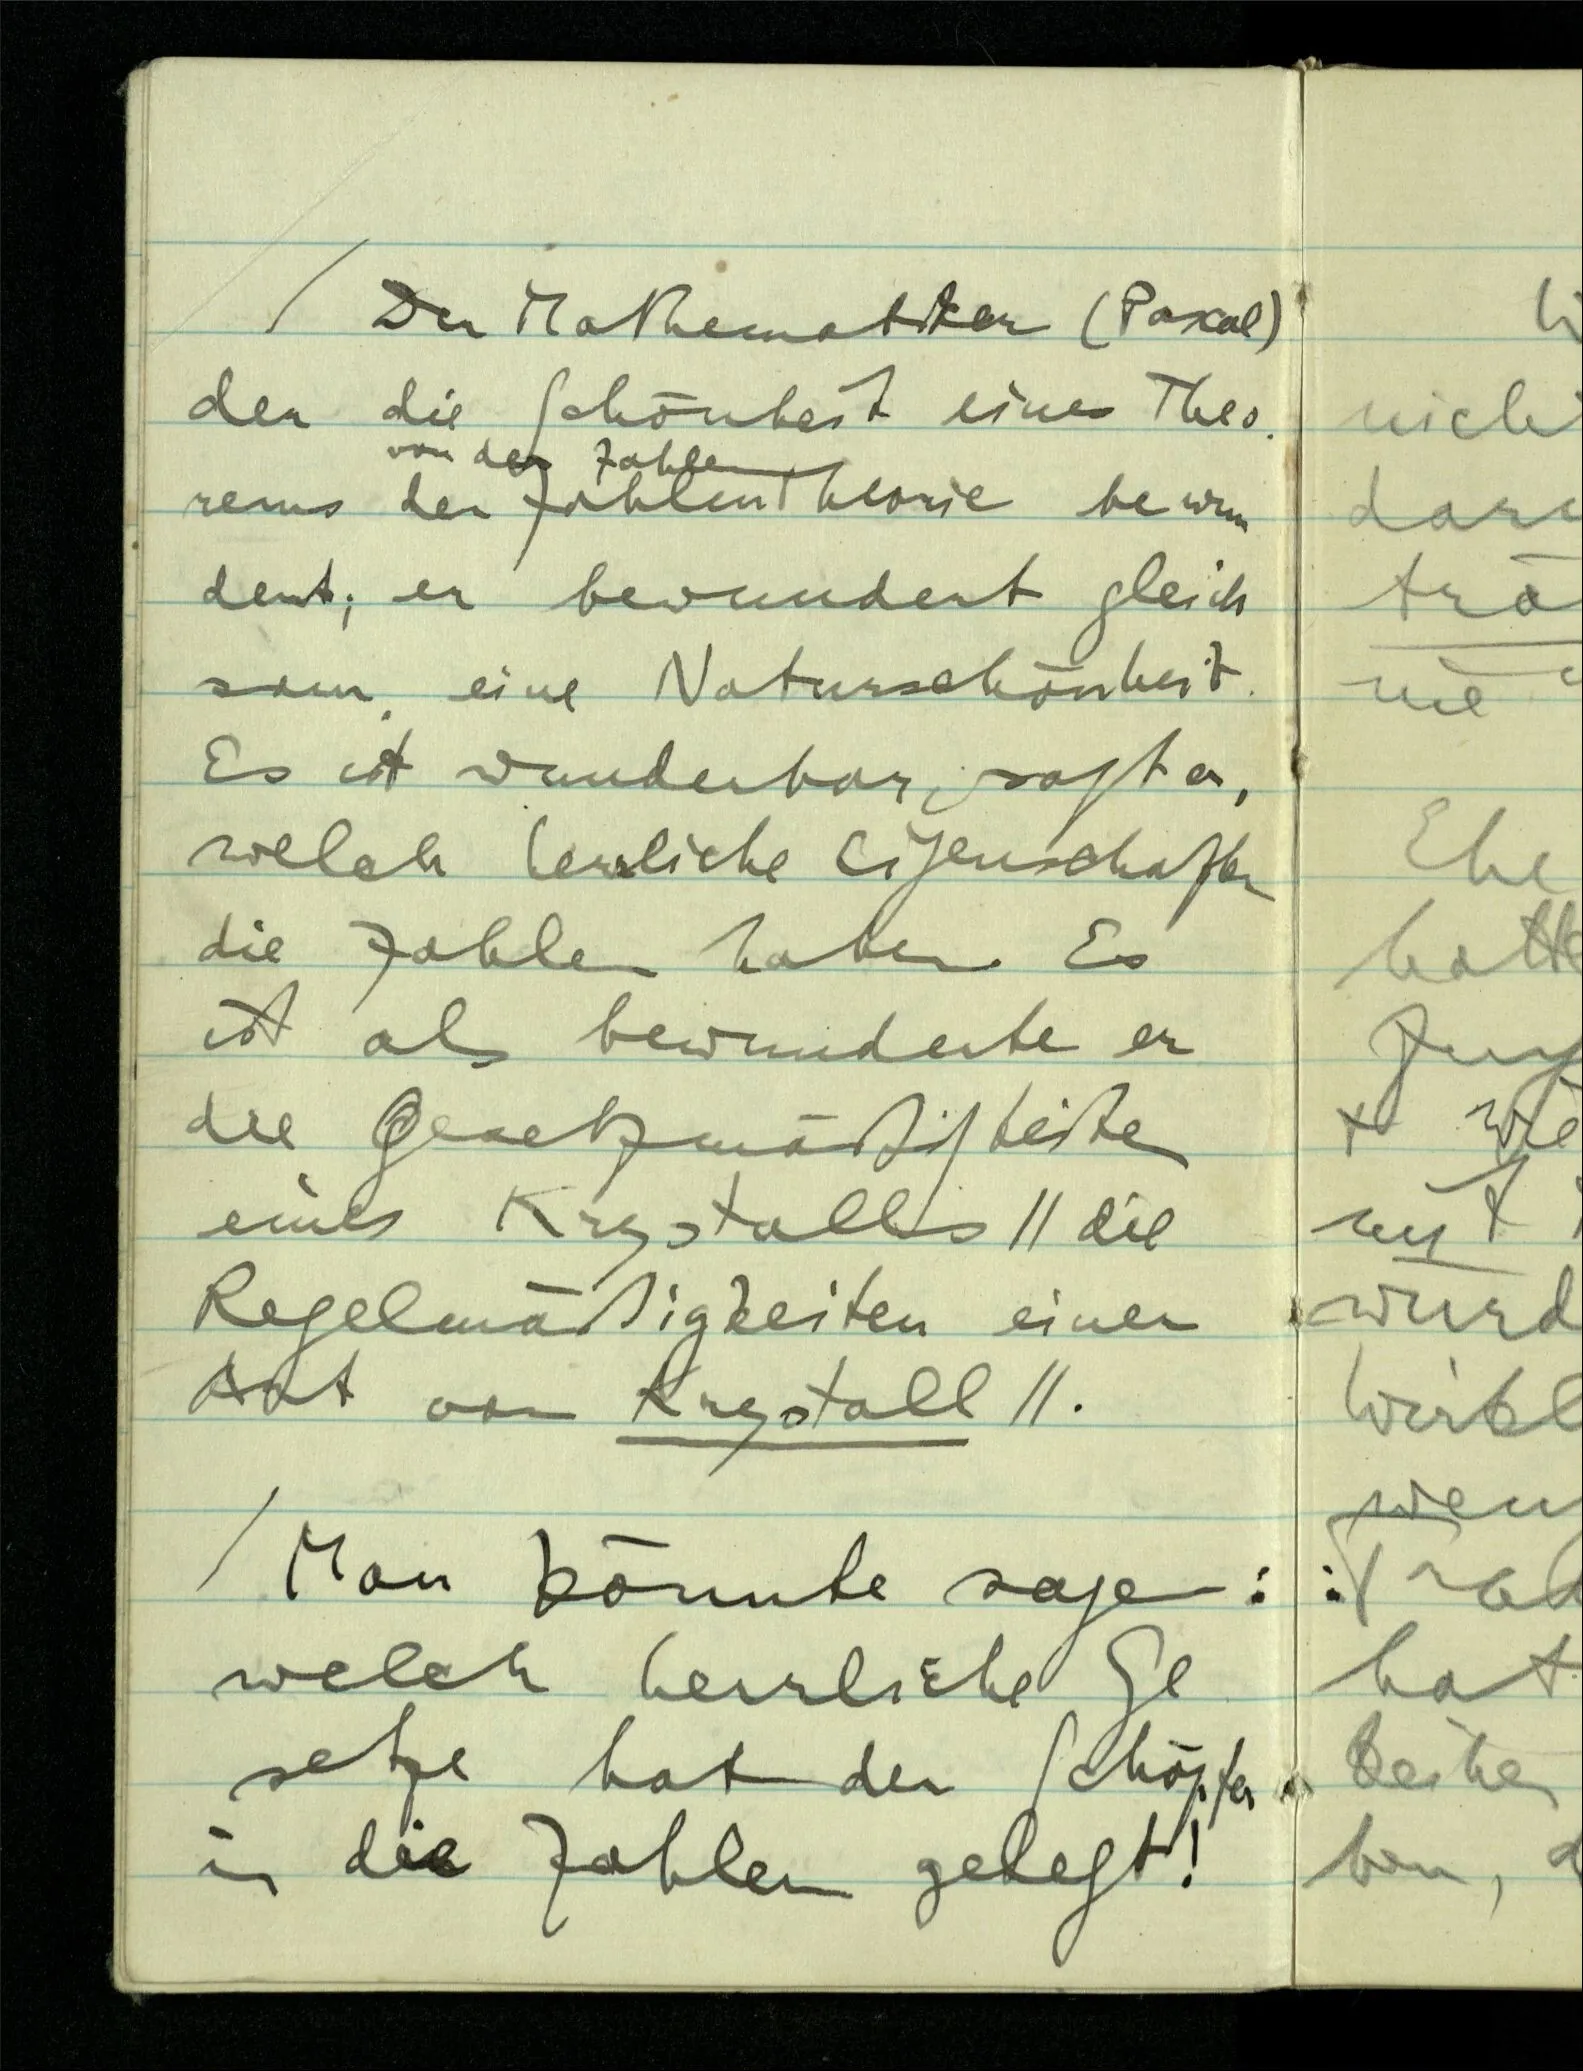 / Der Mathematiker (Pascal)
der die Schönheit eines Theo
von den Zahlen
rems der Zahlentheorie bewun
dert; er bewundert gleich
sam eine Naturschönheit.
Es ist wunderbar, sagt er,
welch herrliche Eigenschaften
die Zahlen haben. Es
ist als bewunderte er
die Gesetzmäßigkeiten
eines Krystalls || die
Regelmäßigkeiten einer
Art von Krystall ||.
/ Man könnte sagen:
welch herrliche Ge
setze hat der Schöpfer
in die Zahlen gelegt!
nicht
Ehe
hat